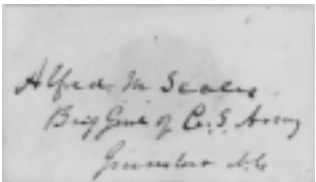 Alfred M Scales
Brig Genl of C.S. Army
Greensboro N.C